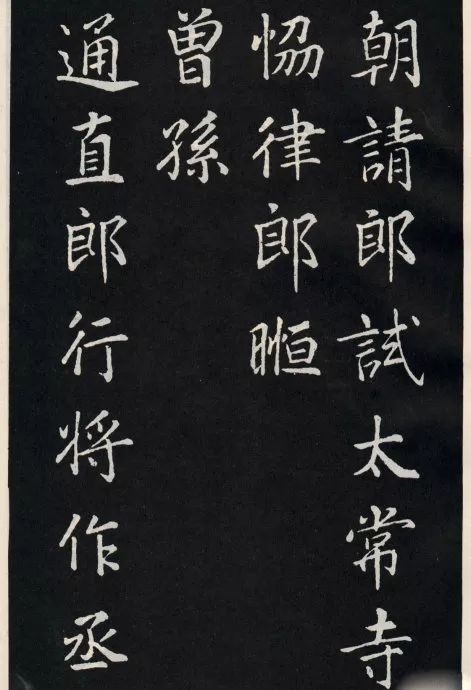 朝請郎試太常寺
恊律郎暅
曽孫
通直郎行将作丞